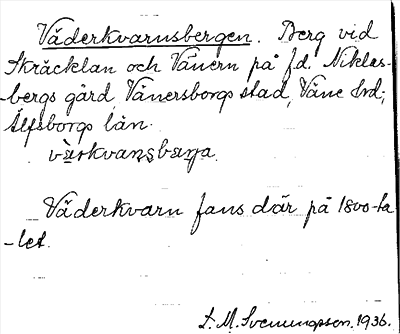 Väderkvarnsbergen. Berg vid
Skräcklan och Vänern på f.d. Niklas-
-bergs gård, Vänersborgs stad, Väne hrd;
Älfsborgs län.
vä̀rkvansbarja.
Väderkvarn fans där på 1800-ta
-let.
L. M. Svenungsson. 1936.